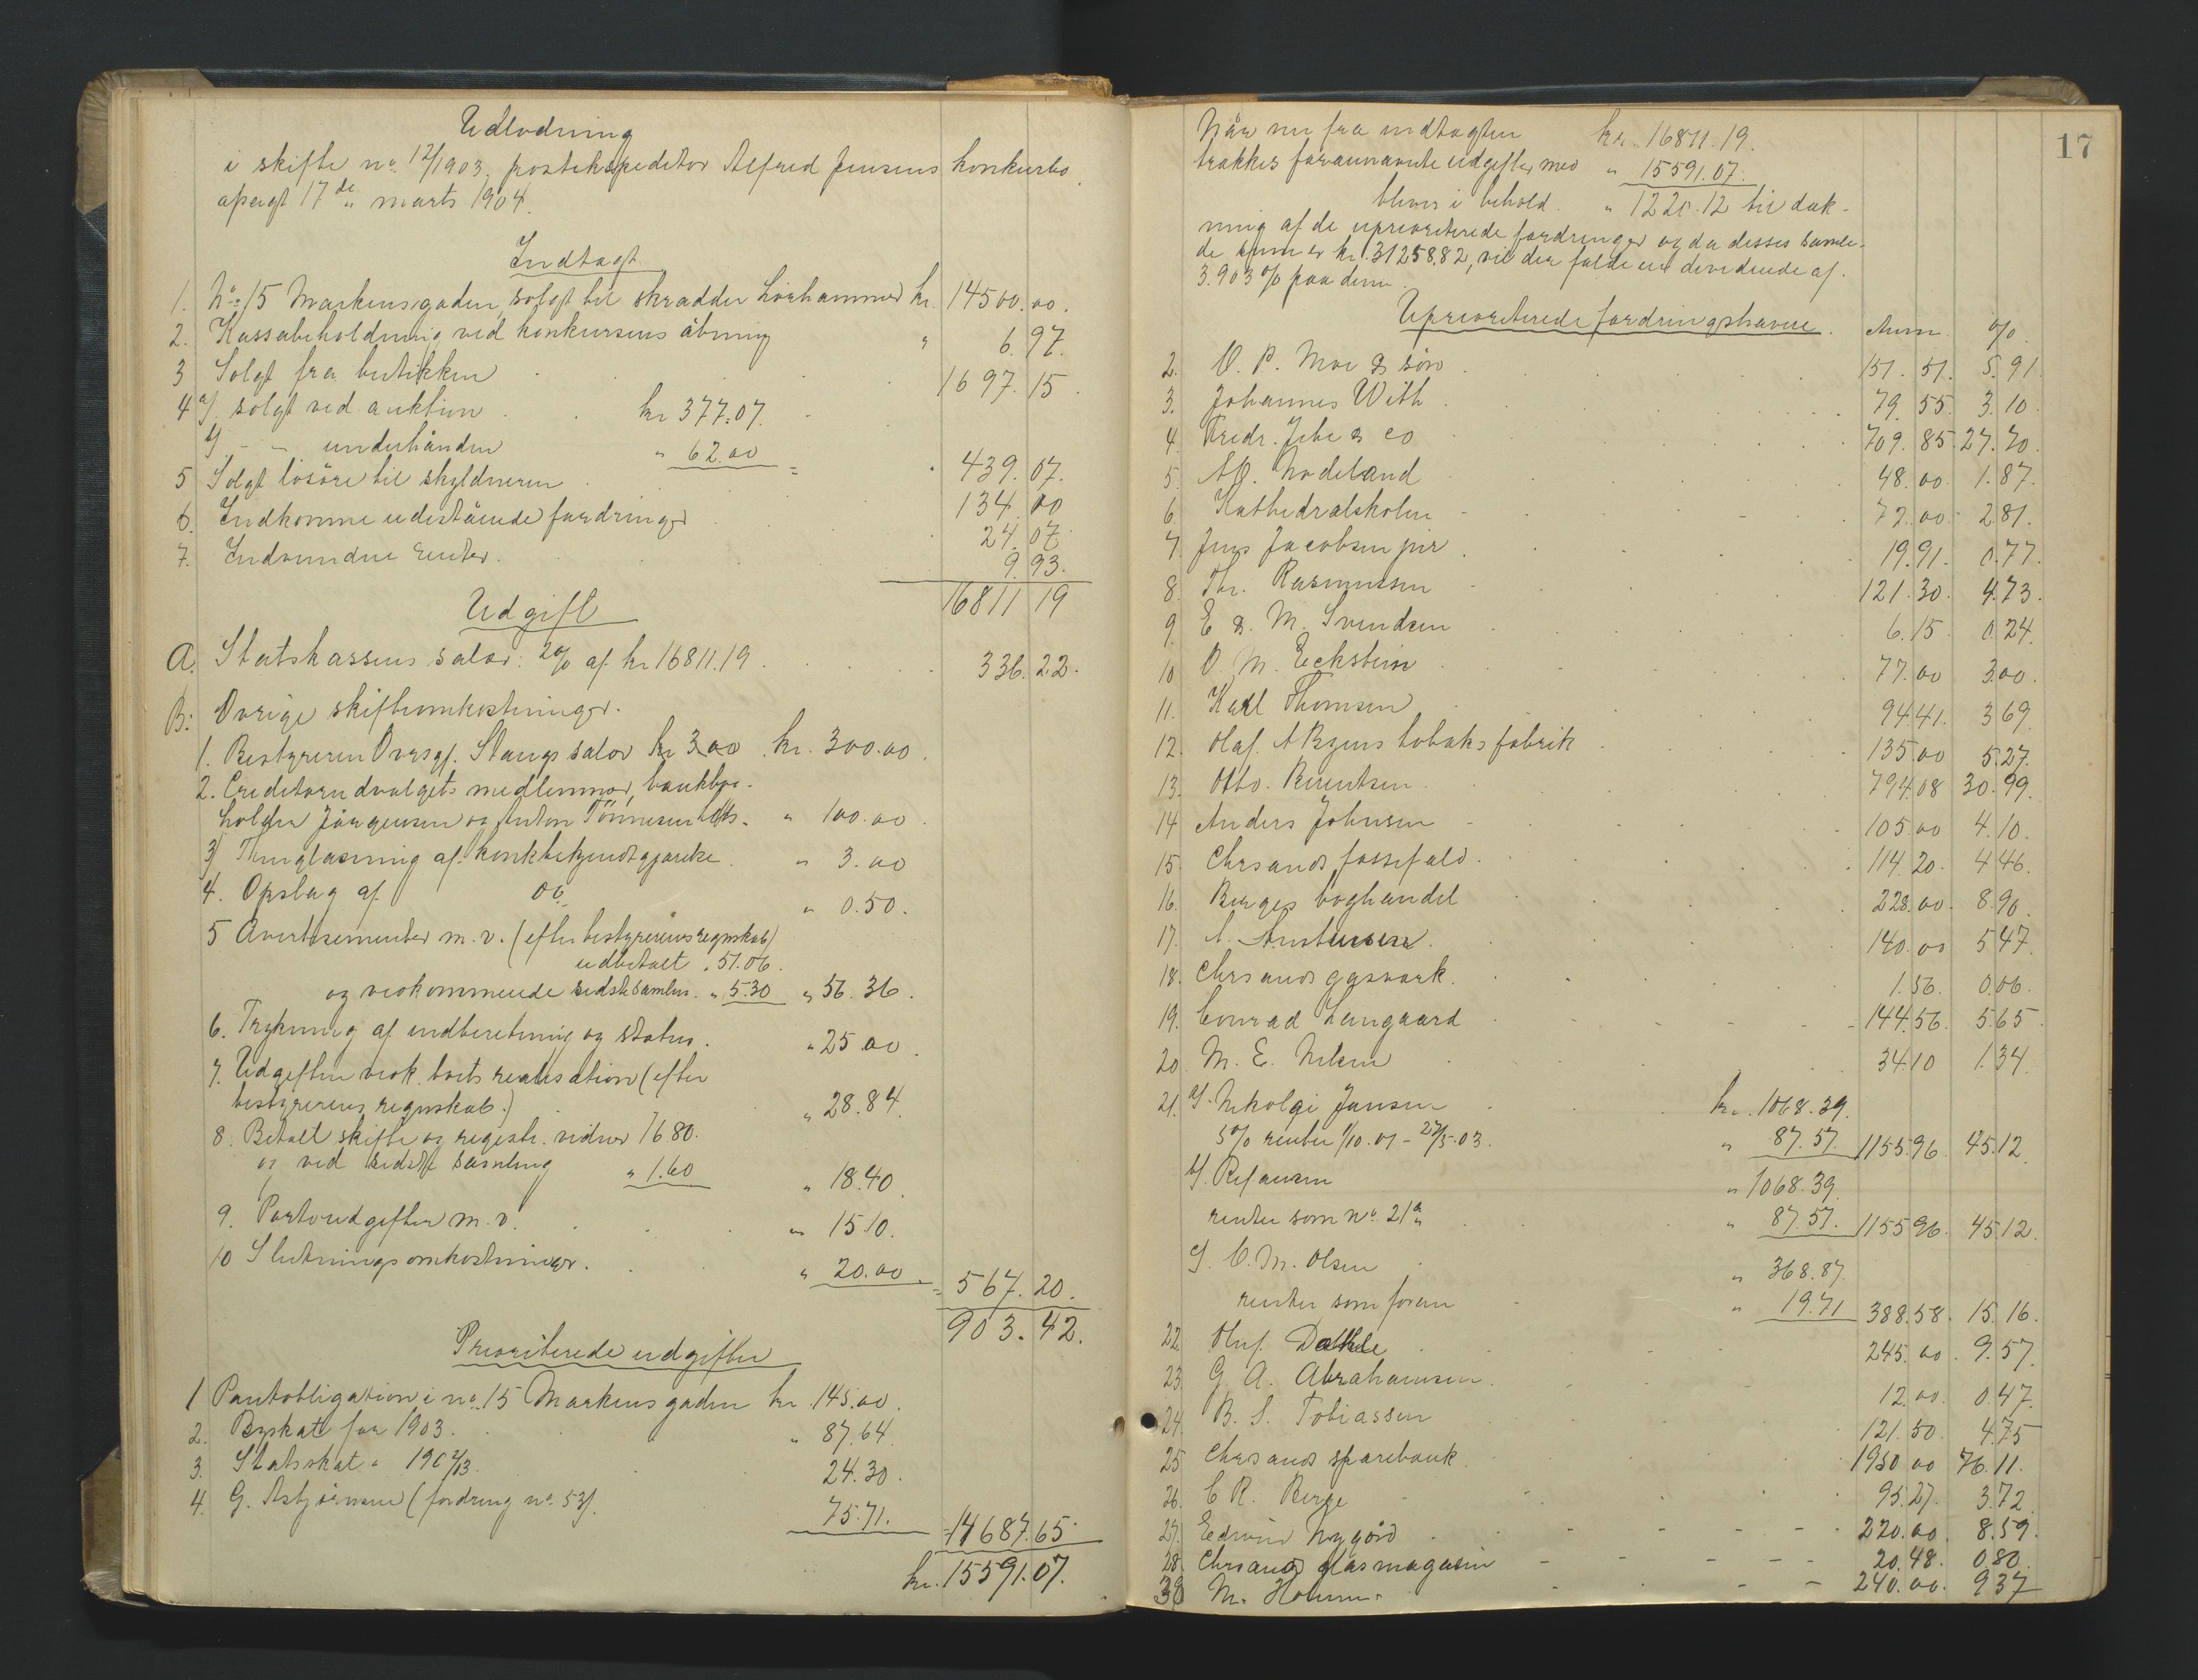 Udlodning
i skifte no. 12/1903, postekspeditør Alfred Jensens konkursbo.
aflagt 17de marts 1904.
Indtægt
1. No. 15 Markensgaden, solgt til skrædder Lörhammer kr. 14500.00.
2. Kassabeholdning ved konkursens åbning " 6.97.
3 Solgt fra butikken 1697.15.
4 a/. solgt ved auktion kr 377.07.
b/ - - underhånden " 62.00 = 439.07.
5 Solgt lösöre til skyldneren 134.00
6. Indkomne udestående fordringer 24.07
7. Indvundne renter. 9.93.
16811 19
Udgift
A. Statskassens salær: 2% af kr 16811.19. 336.22.
B: Övrige skifteomkostninger.
1. Bestyreren Overs gf. Stangs salær kr 300 kr. 300.00.
2. Creditorudvalgets medlemmer, bankbog-
holder Jörgensen og Anton Tönnesen " 100.00.
3/ Thinglæsning af konkbekjendtgjörelse. " 3.00
4. Opslag af do " 0.50.
5 Avertisementer m.v. (efter bestyrerens regnskab)
udbetalt " 51.06.
og vedkommende sidste samling. " 5.30 " 56.36.
6. Trykning af indberetning og status. " 25.00.
7. Udgifter vedk. boets realisation (efter
bestyrerens regnskab.) " 28.84.
8. Betalt skifte og registr. vidner 16.80.
og ved sidste samling " 1.60 " 18.40.
9. Portoudgifter m.v. " 15.10.
10 Slutningsomkostninger. " 20.00 = 567.20.
903.42.
Prioriterede udgifter
1 Pantobligation i no. 15 Markensgaden kr. 145.00.
2. Byskat for 1903. " 87.64.
3. Statsskat " 1902/03. 24.30.
4. G. Asbjörnsen (fordring no. 53). 75.71. = 14687.65.
kr. 15591.07.
17
Når nu fra indtægten kr. 16811.19.
trækkes forannævnte udgifter med " 15591.07.
bliver i behold. " 1220.12 til dæk-
ning af de uprioriterede fordringer og da disses samle-
de sum er kr. 31258.82, vil der falde en dividende af
3.903% paa dem.
Uprioriterede fordringshavere. Anm. %
2. O. P. Moe & sön 151.51. 5.91
3. Johannes With 79.55. 3.10.
4. Fredr. Jebe & co 709.85. 27.70.
5. A. O. Nodeland 48.00. 1.87.
6. Kathedralskolen 72.00. 2.81.
7. Jens Jacobsen jnr 19.91. 0.77.
8. Thr. Rasmussen 121.30. 4.73.
9. E & M. Svendsen 6.15. 0.24.
10 O. M. Eckstein 77.00 3.00.
11. Karl Thomsen 94.41. 3.69.
12. Olaf A Byens tobaksfabrik 135.00 5.27.
13. Otto. Berentsen. 794.08 30.99.
14 Anders Johnsen 105.00 4.10.
15. Chrsands fossefald. 114.20. 4.46.
16. Berges boghandel 228.00. 8.90.
17. A. Anstensen. 140.00 5.47.
18. Chrsands gasværk. 1.56. 0.06.
19. Conrad Langaard 144.56. 5.65
20. M. E. Nelsen 34.10 1.34.
21. a/. Nikolai Jansen kr. 1068.39.
5% renter 1/10.01 - 27/5.03. " 87.57. 1155.96. 45.12.
b/. Refansen " 1068.39.
renter som no. 21a " 87.57. 1155.96. 45.12.
c/. C. M. Olsen " 368.87.
renter som foran " 19.71 388.58. 15.16.
22. Oluf Dahle 245.00. 9.57.
23. G. A. Abrahamsen. 12.00. 0.47.
24. B. S. Tobiassen 121.50. 4.75
25 Chrsands sparebank. 1950.00 76.11.
26. C R. Berge 95.27. 3.72.
27. Edvin Nygård 220.00. 8.59.
28. Chrsands glasmagasin 20.48. 0.80.
30 M. Holum. 240.00. 9.37